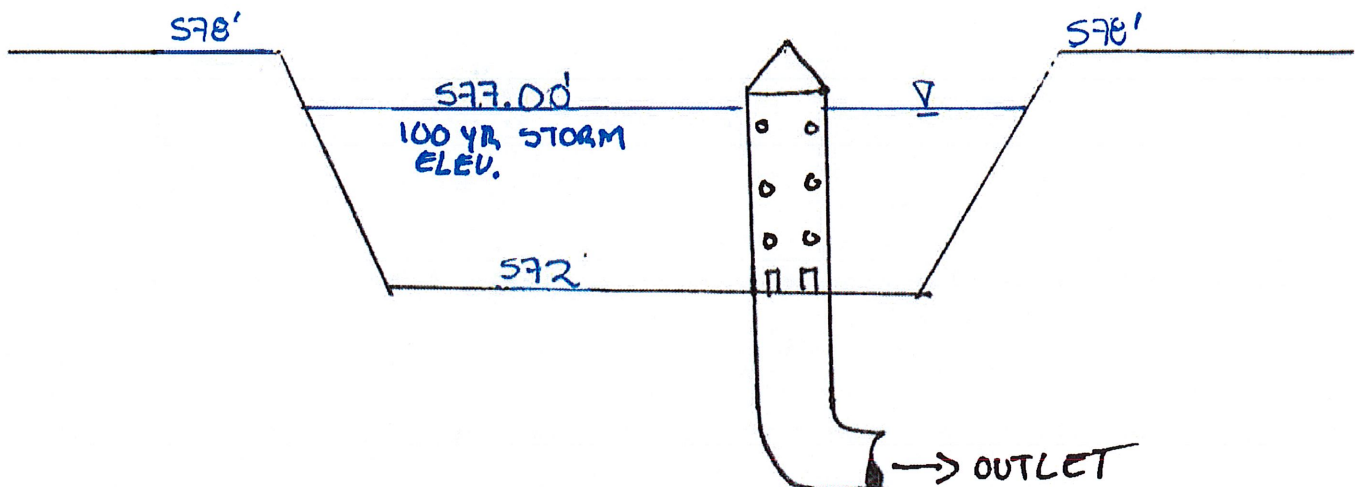 578'
578'
577.00'
100 YR STORM
ELEV.
572
→ OUTLET